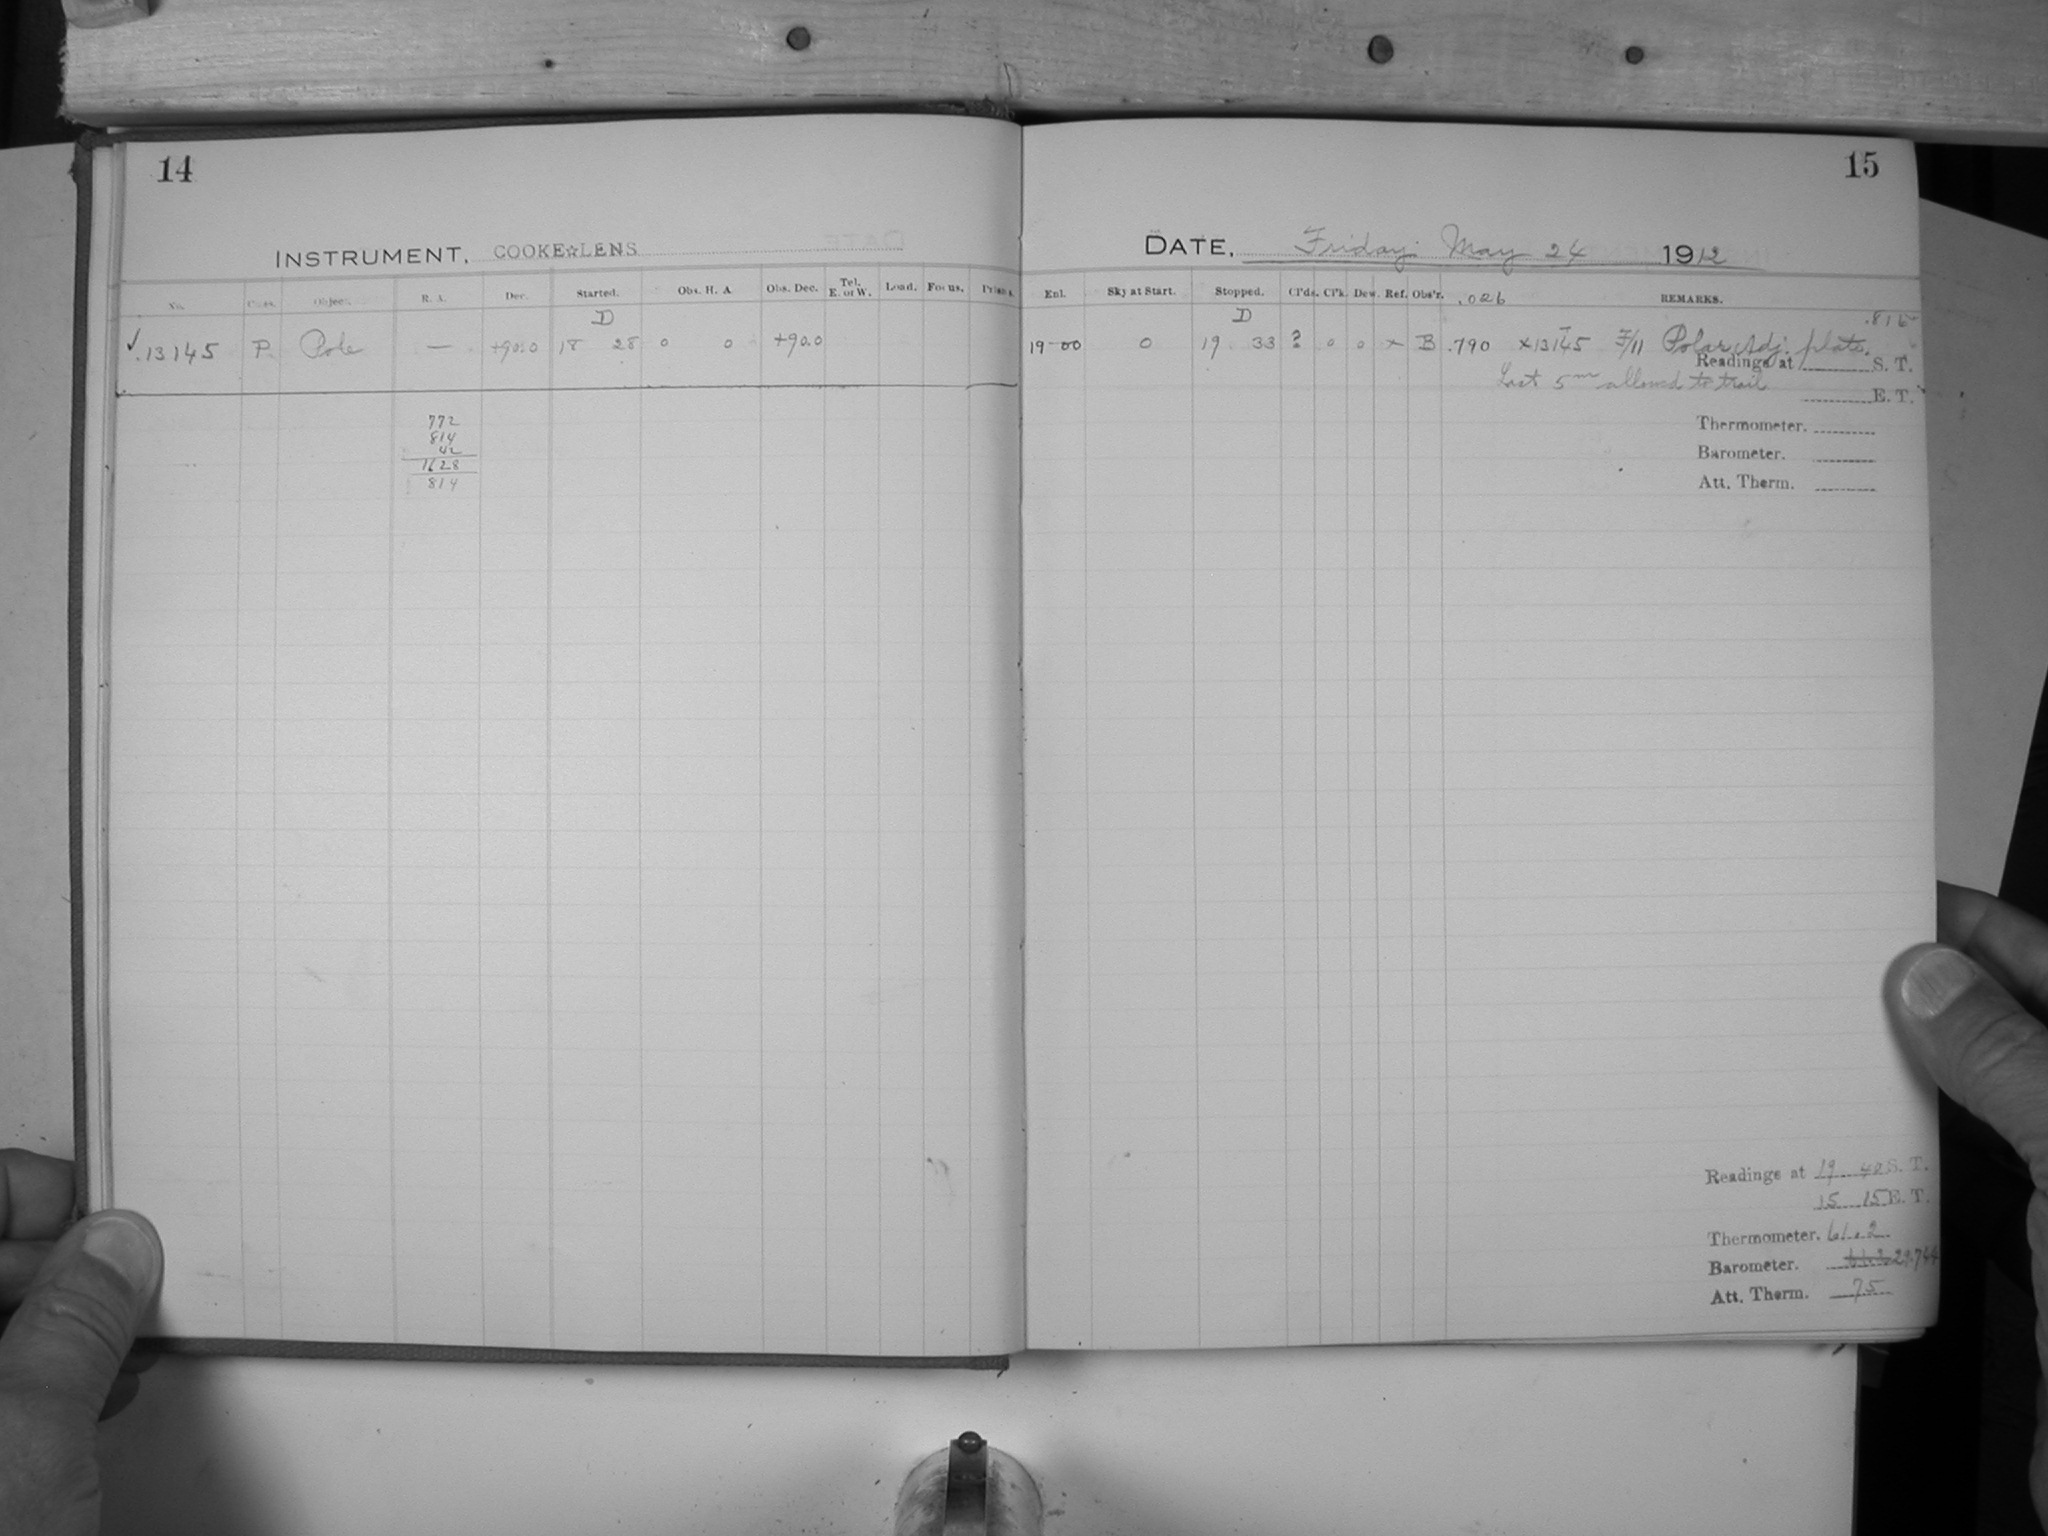 14
INSTRUMENT, COOKE☆LENS
No. Class. Object. R. A. Dec. Started. Obs. H. A. Obs. Dec. Tel. E. or W. Load. Focus. Prisms.
D
✓.13145 P. Pole — +90.0 18 28 0 0 +90.0
772
814
42
1628
814
15
DATE, Friday May 24 1912
Enl. Sky at Start. Stopped. Cl'ds. Cl'k. Dew. Ref. Obs'r. .026 REMARKS.
D .815
19-00 0 19 33 ? 0 0 x B .790 x13145 F/11 Polar Adj. plate.
Readings at S. T.
Last 5m allowed to trail
E. T.
Thermometer.
Barometer.
Att. Therm.
Readings at 19 40 S. T.
15 15 E. T.
Thermometer. 61.2
Barometer. 29.744
Att. Therm. 75